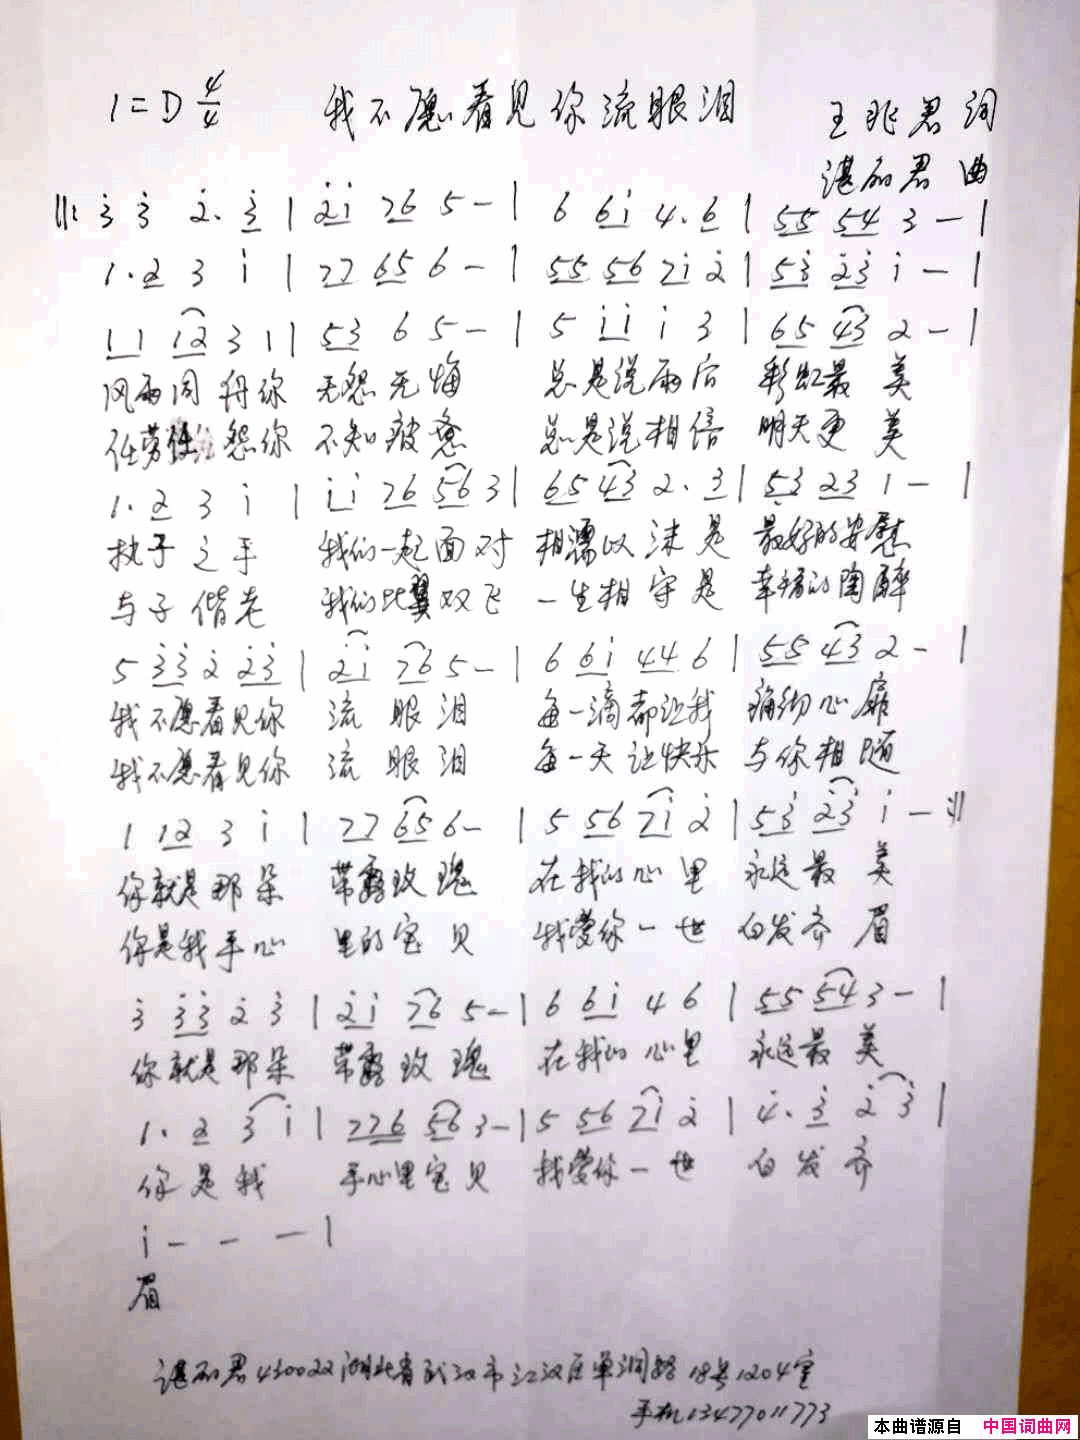 1=D 4/4 我不愿看见你流眼泪 王兆君 词
谌丽君 曲
‖: 3̇ 3̇ 2̇. 3̇ | 2̇1̇ 76 5 - | 6 61̇ 4. 6 | 55 54 3 - |
1. 2 3 1̇ | 77 65 6 - | 55 56 71̇ 2̇ | 53̇ 2̇3̇ 1̇ - |
11 12 3 1 | 53 6 5 - | 5 1̇1̇ 1̇ 3 | 65 43 2 - |
风雨同舟你 无怨无悔 总是说雨后 彩虹最 美
任劳任怨你 不知疲惫 总是说相信 明天更 美
1. 2 3 1̇ | 1̇1̇ 76 56 3 | 65 43 2. 3 | 53 23 1 - |
执子之手 我们一起面对 相濡以沫是 最好的安慰
与子偕老 我们比翼双飞 一生相守是 幸福的陶醉
5 3̇3̇ 2̇ 2̇3̇ | 2̇1̇ 76 5 - | 6 61̇ 44 6 | 55 43 2 - |
我不愿看见你 流 眼 泪 每一滴都让我 痛彻心扉
我不愿看见你 流 眼 泪 每一天让快乐 与你相随
1 12 3 1̇ | 77 65 6 - | 5 56 71̇ 2̇ | 53̇ 2̇3̇ 1̇ - :‖
你就是那朵 带露玫瑰 在我的心里 永远最 美
你是我手心 里的宝贝 我爱你一世 白发齐 眉
3̇ 3̇3̇ 2̇ 3̇ | 2̇1̇ 76 5 - | 6 61̇ 4 6 | 55 54 3 - |
你就是那朵 带露玫瑰 在我的心里 永远最 美
1. 2 3 1̇ | 776 56 3 - | 5 56 71̇ 2̇ | 4̇. 3̇ 2̇ 3̇ |
你是我 手心里宝贝 我爱你一世 白发齐
1̇ - - - |
眉
谌丽君430022湖北省武汉市江汉区单洞路18号1204室
手机13477011773
本曲谱源自 中国词曲网